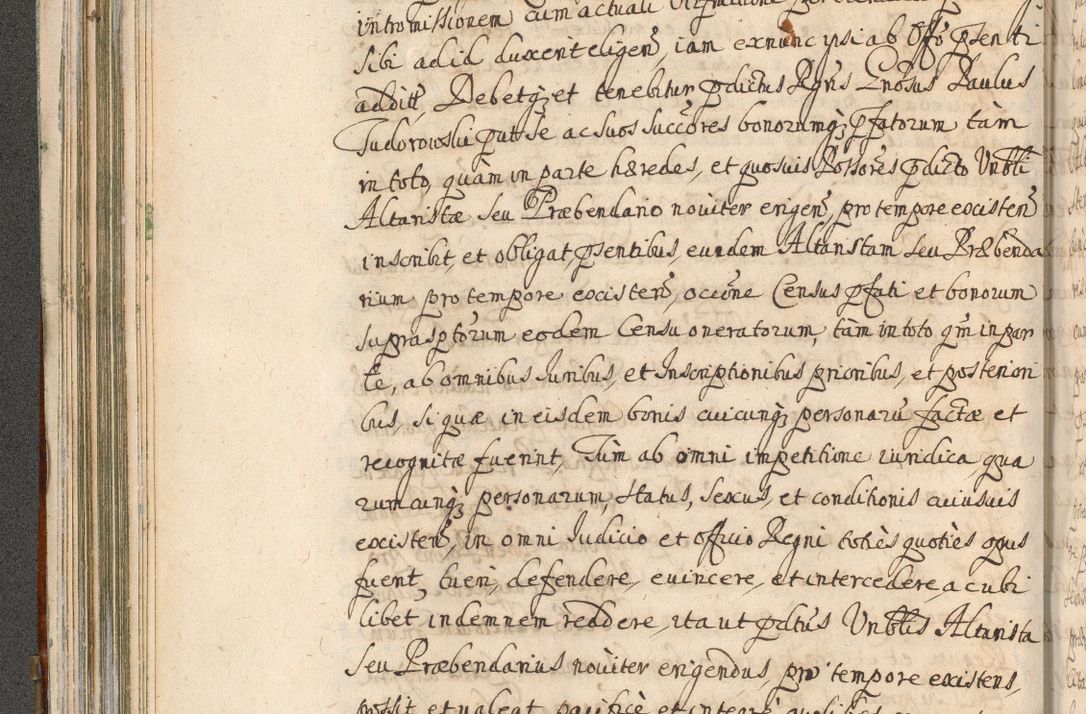 intromissionem cum actuali
sibi ad id duxerit eligen̄, iam exnunc ipsi ab Offo p̄senti
additt, Debetq; et tenebitur p̄dictus Rgn̄s Gn̄osus Paulus
Tudorowski per se ac suos succ̄ores bonorumq; p̄fatorum tàm
in toto, quàm in parte hæredes, et quosuis Possores p̄dicto Vnbli
Altaristæ seu Præbendario nouiter erigen̄, pro tempore existen̄
inscribit, et obligat, p̄sentibus, eundem Altaristam seu Præbenda
rium pro tempore existen̄, occ̄one Census p̄fati et bonorum
suprasp̄torum eodem Censu oneratorum, tàm in toto qm̄ in par
te, ab omnibus Iuribus, et Inscriptionibus prioribus, et posteriori
bus, si quæ in eisdem bonis cuicunq; personarū factæ et
recognitæ fuerint, Tùm ab omni impetitione iuridica, qua
rumcunq; personarum, status, sexus, et conditionis cuiusuis
existen̄, in omni Iudicio et officio Regni totiès quotiès opus
fuerit, tueri, defendere, euincere, et intercedere, ac ubi
libet indemnem reddere, ita ut p̄dtus Vnblis Altarista
seu Præbendarius nouiter erigendus, pro tempore existens,
possit et ualeat pacificè et integrè